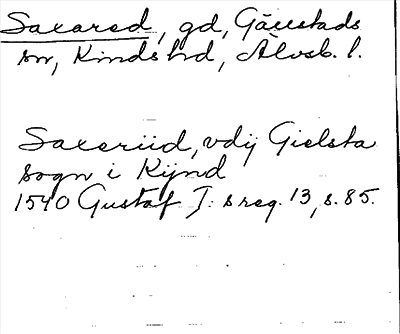 Saxared, gd, Gällstads
sn, Kinds hd, Älvsb. l.
Saxeriid, vdij Gielsta
sogn i Kijnd
1540 Gustaf I: s reg. 13, s. 85.